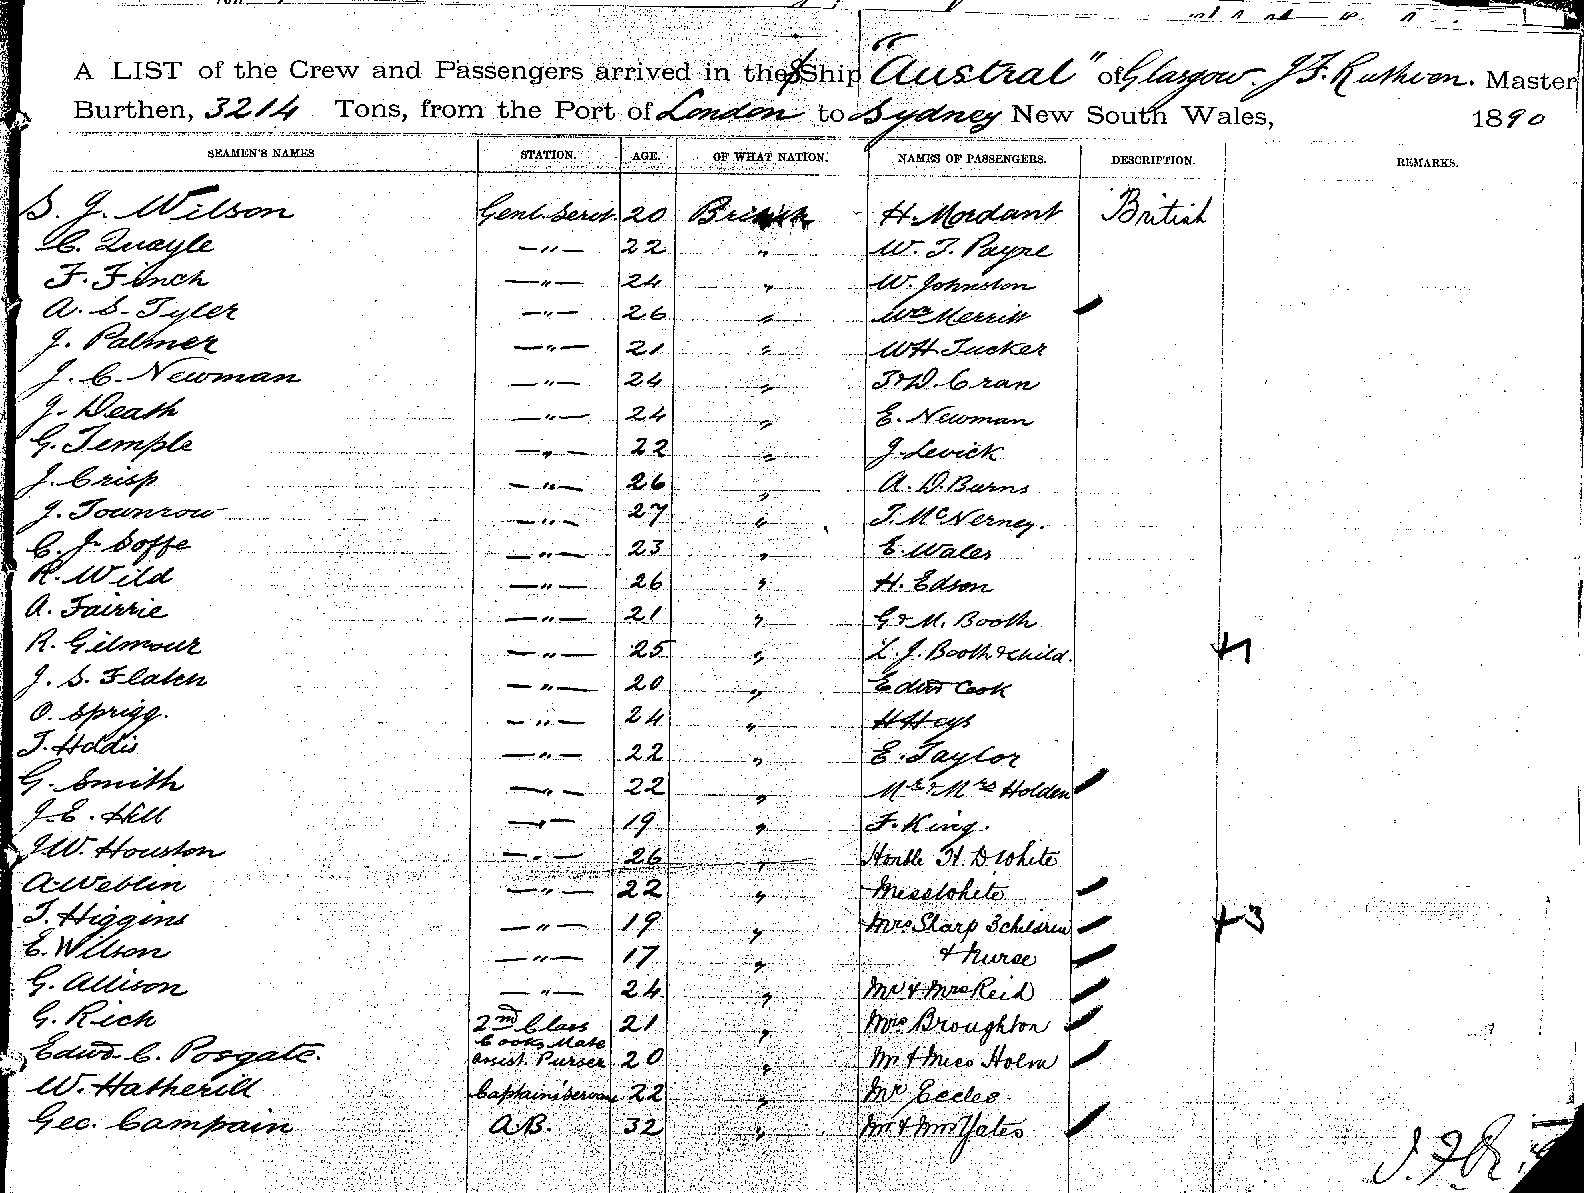 A LIST of the Crew and Passengers arrived in the SShip "Austral" of Glasgow. J F. Ruthven. Master
Burthen, 3214 Tons, from the Port of London to Sydney New South Wales, 1890
SEAMEN'S NAMES STATION. AGE. OF WHAT NATION. NAMES OF PASSENGERS. DESCRIPTION. REMARKS.
S. J. Wilson Genl. Servt. 20 British H. Mordant British
C. Quayle —"— 22 " W. T. Payne
F. Finch —"— 24 " W. Johnston
A. S. Tyler —"— 26 " Merritt
J. Palmer —"— 21 " W H. Tucker
J. C. Newman —"— 24 " Cran
J. Death —"— 24 " E. Newman
G. Temple —"— 22 " J. Levick
J. Crisp —"— 26 " A. D. Burns
J. Townrow —"— 27 " T. McNerney.
C. J. Soffe —"— 23 " E. Wales
R. Wild —"— 26 " H. Edson
A. Fairrie —"— 21 " G & M. Booth
R. Gilmour —"— 25 " L. J. Booth & child. +1
J. S. Flaten —"— 20 " Edwd Cook
O. Sprigg. —"— 24 " H Heys
T. Hddis —"— 22 " E. Taylor
G. Smith —"— 22 " Mr & Mrs Holden
J. E. Hill —"— 19 " F. King.
J W. Houston —"— 26 " Honble H. D. White
A. Weblin —"— 22 " Miss White
T. Higgins —"— 19 " Mrs Sharp 3 children +3
E. Wilson —"— 17 " & Nurse
G. Allison —"— 24 " Mr & Mrs Reid
G. Rich 2nd Class Cooks Mate 21 " Mrs Broughton
Edwd. C. Posgate. Assist. Purser 20 " Mr & Miss Holm
W. Hatherill Captain's Servant 22 " Mr Eccles
Geo. Campain A.B. 32 " Mr & Mrs Yates